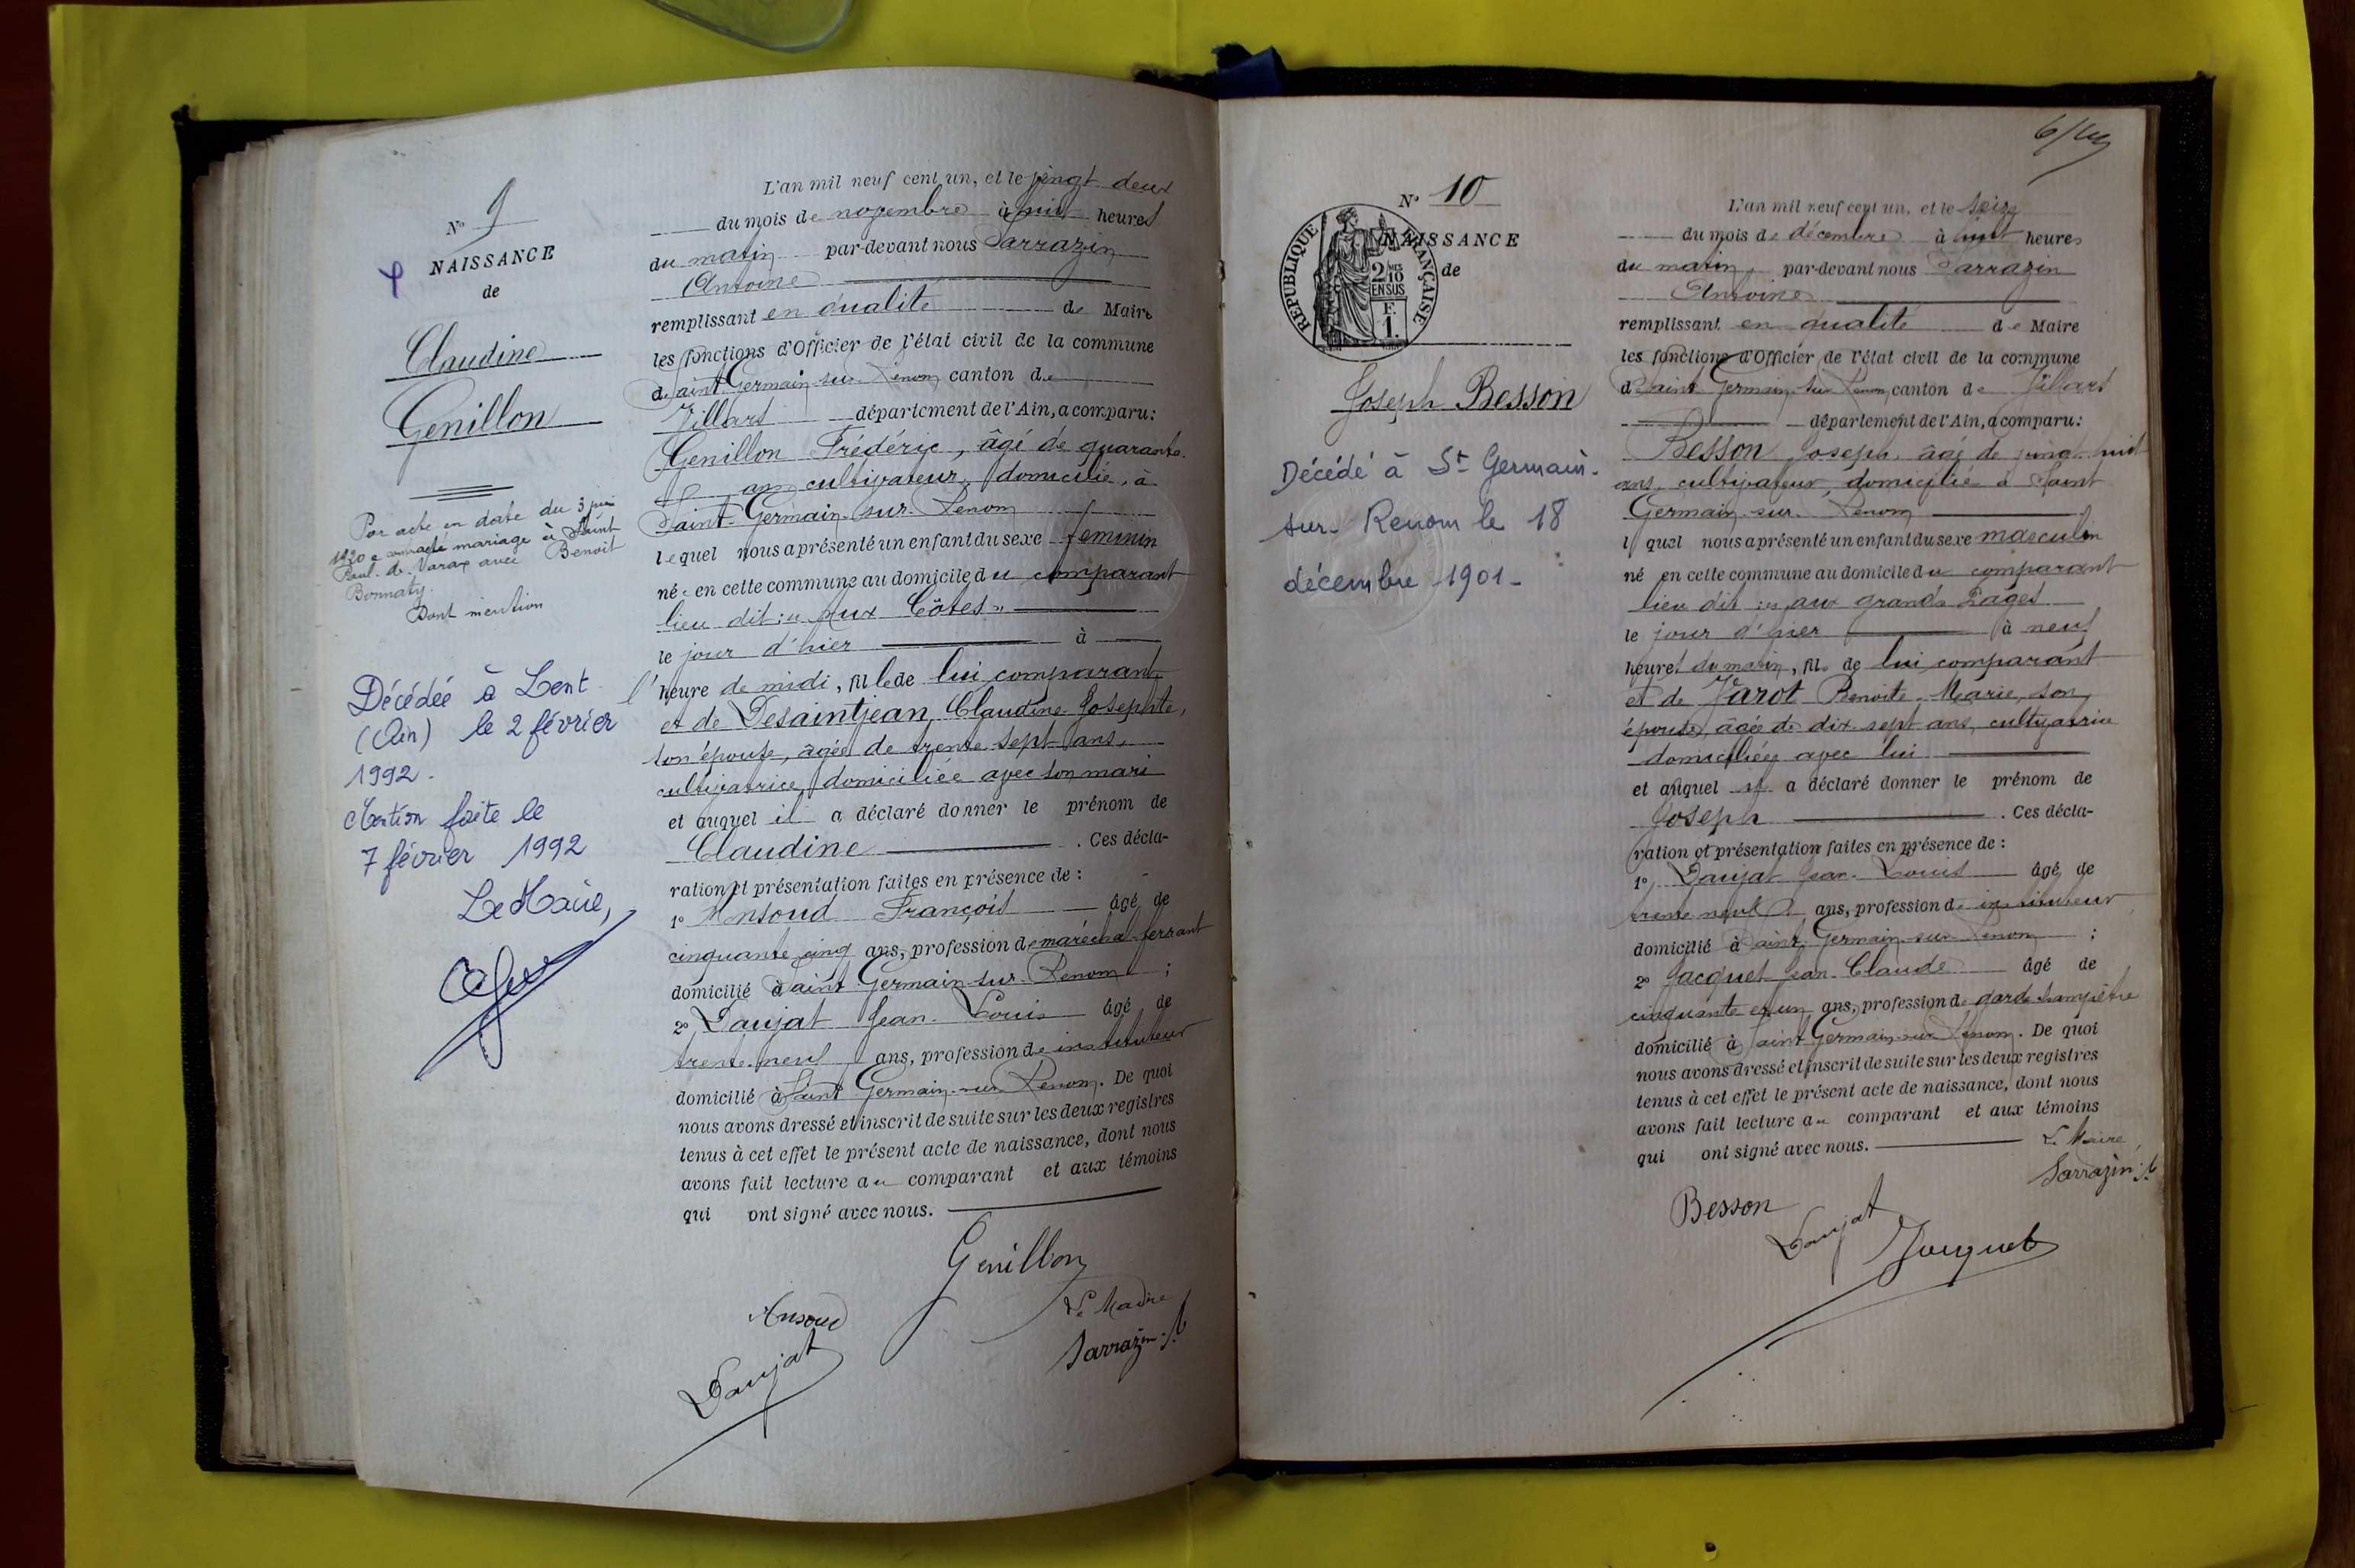 N° 9
NAISSANCE
de
Claudine
Genillon
Par acte en date du 3 juin
1920 a contracté mariage à Saint
Paul-de-Varax avec Benoit
Bonnaty.
Dont mention
Décédée à Lent
(Ain) le 2 février
1992.
Mention faite le
7 février 1992
Le Maire,
L'an mil neuf cent un, et le vingt deux
du mois de novembre à huit heures
du matin par-devant nous Sarrazin
Antoine
remplissant en qualité de Maire
les fonctions d'Officier de l'état civil de la commune
de Saint Germain-sur-Renom canton de
Villars département de l'Ain, a comparu:
Genillon Frédéric, âgé de quarante
ans cultivateur, domicilié, à
Saint-Germain-sur-Renom
lequel nous a présenté un enfant du sexe féminin
née en cette commune au domicile du comparant
lieu dit: « Aux Côtes »
le jour d'hier à
l'heure de midi, fille de lui comparant,
et de Desaintjean, Claudine Josephte,
son épouse, âgée de trente sept ans,
cultivatrice, domiciliée avec son mari
et auquel il a déclaré donner le prénom de
Claudine . Ces décla-
ration et présentation faites en présence de :
1° Ansoud François âgé de
cinquante cinq ans, profession de maréchal-ferrant
domicilié à Saint Germain-sur-Renom ;
2° Daujat Jean-Louis âgé de
trente-neuf ans, profession de instituteur
domicilié à Saint Germain-sur-Renom. De quoi
nous avons dressé et inscrit de suite sur les deux registres
tenus à cet effet le présent acte de naissance, dont nous
avons fait lecture au comparant et aux témoins
qui ont signé avec nous.
Genillon
Ansoud
Le Maire
Daujat
Sarrazin A
N° 10
NAISSANCE
de
REPUBLIQUE FRANÇAISE
2 MES
10
EN SUS
F.
1.
Joseph Besson
Décédé à St Germain-
sur-Renom le 18
décembre 1901-
L'an mil neuf cent un, et le seize
du mois de décembre à huit heures
du matin, par-devant nous Sarrazin
Antoine
remplissant en qualité de Maire
les fonctions d'Officier de l'état civil de la commune
de Saint Germain-sur-Renom, canton de Villars
département de l'Ain, a comparu:
Besson Joseph, âgé de vingt-huit
ans, cultivateur, domicilié à Saint
Germain-sur-Renom
lequel nous a présenté un enfant du sexe masculin
né en cette commune au domicile du comparant
lieu dit: « aux grands
le jour d'hier à neuf
heures du matin, fils de lui comparant
et de Varot Benoite-Marie, son
épouse, âgée de dix-sept ans, cultivatrice
domiciliée avec lui
et auquel il a déclaré donner le prénom de
Joseph . Ces décla-
ration et présentation faites en présence de :
1° Daujat Jean-Louis âgé de
trente neuf ans, profession de instituteur
domicilié à Saint Germain-sur-Renom ;
2° Jacquet Jean-Claude âgé de
cinquante et un ans, profession de garde champêtre
domicilié à Saint Germain-sur-Renom. De quoi
nous avons dressé et inscrit de suite sur les deux registres
tenus à cet effet le présent acte de naissance, dont nous
avons fait lecture au comparant et aux témoins
qui ont signé avec nous. Le Maire,
Sarrazin A
Besson
Daujat Jacquet